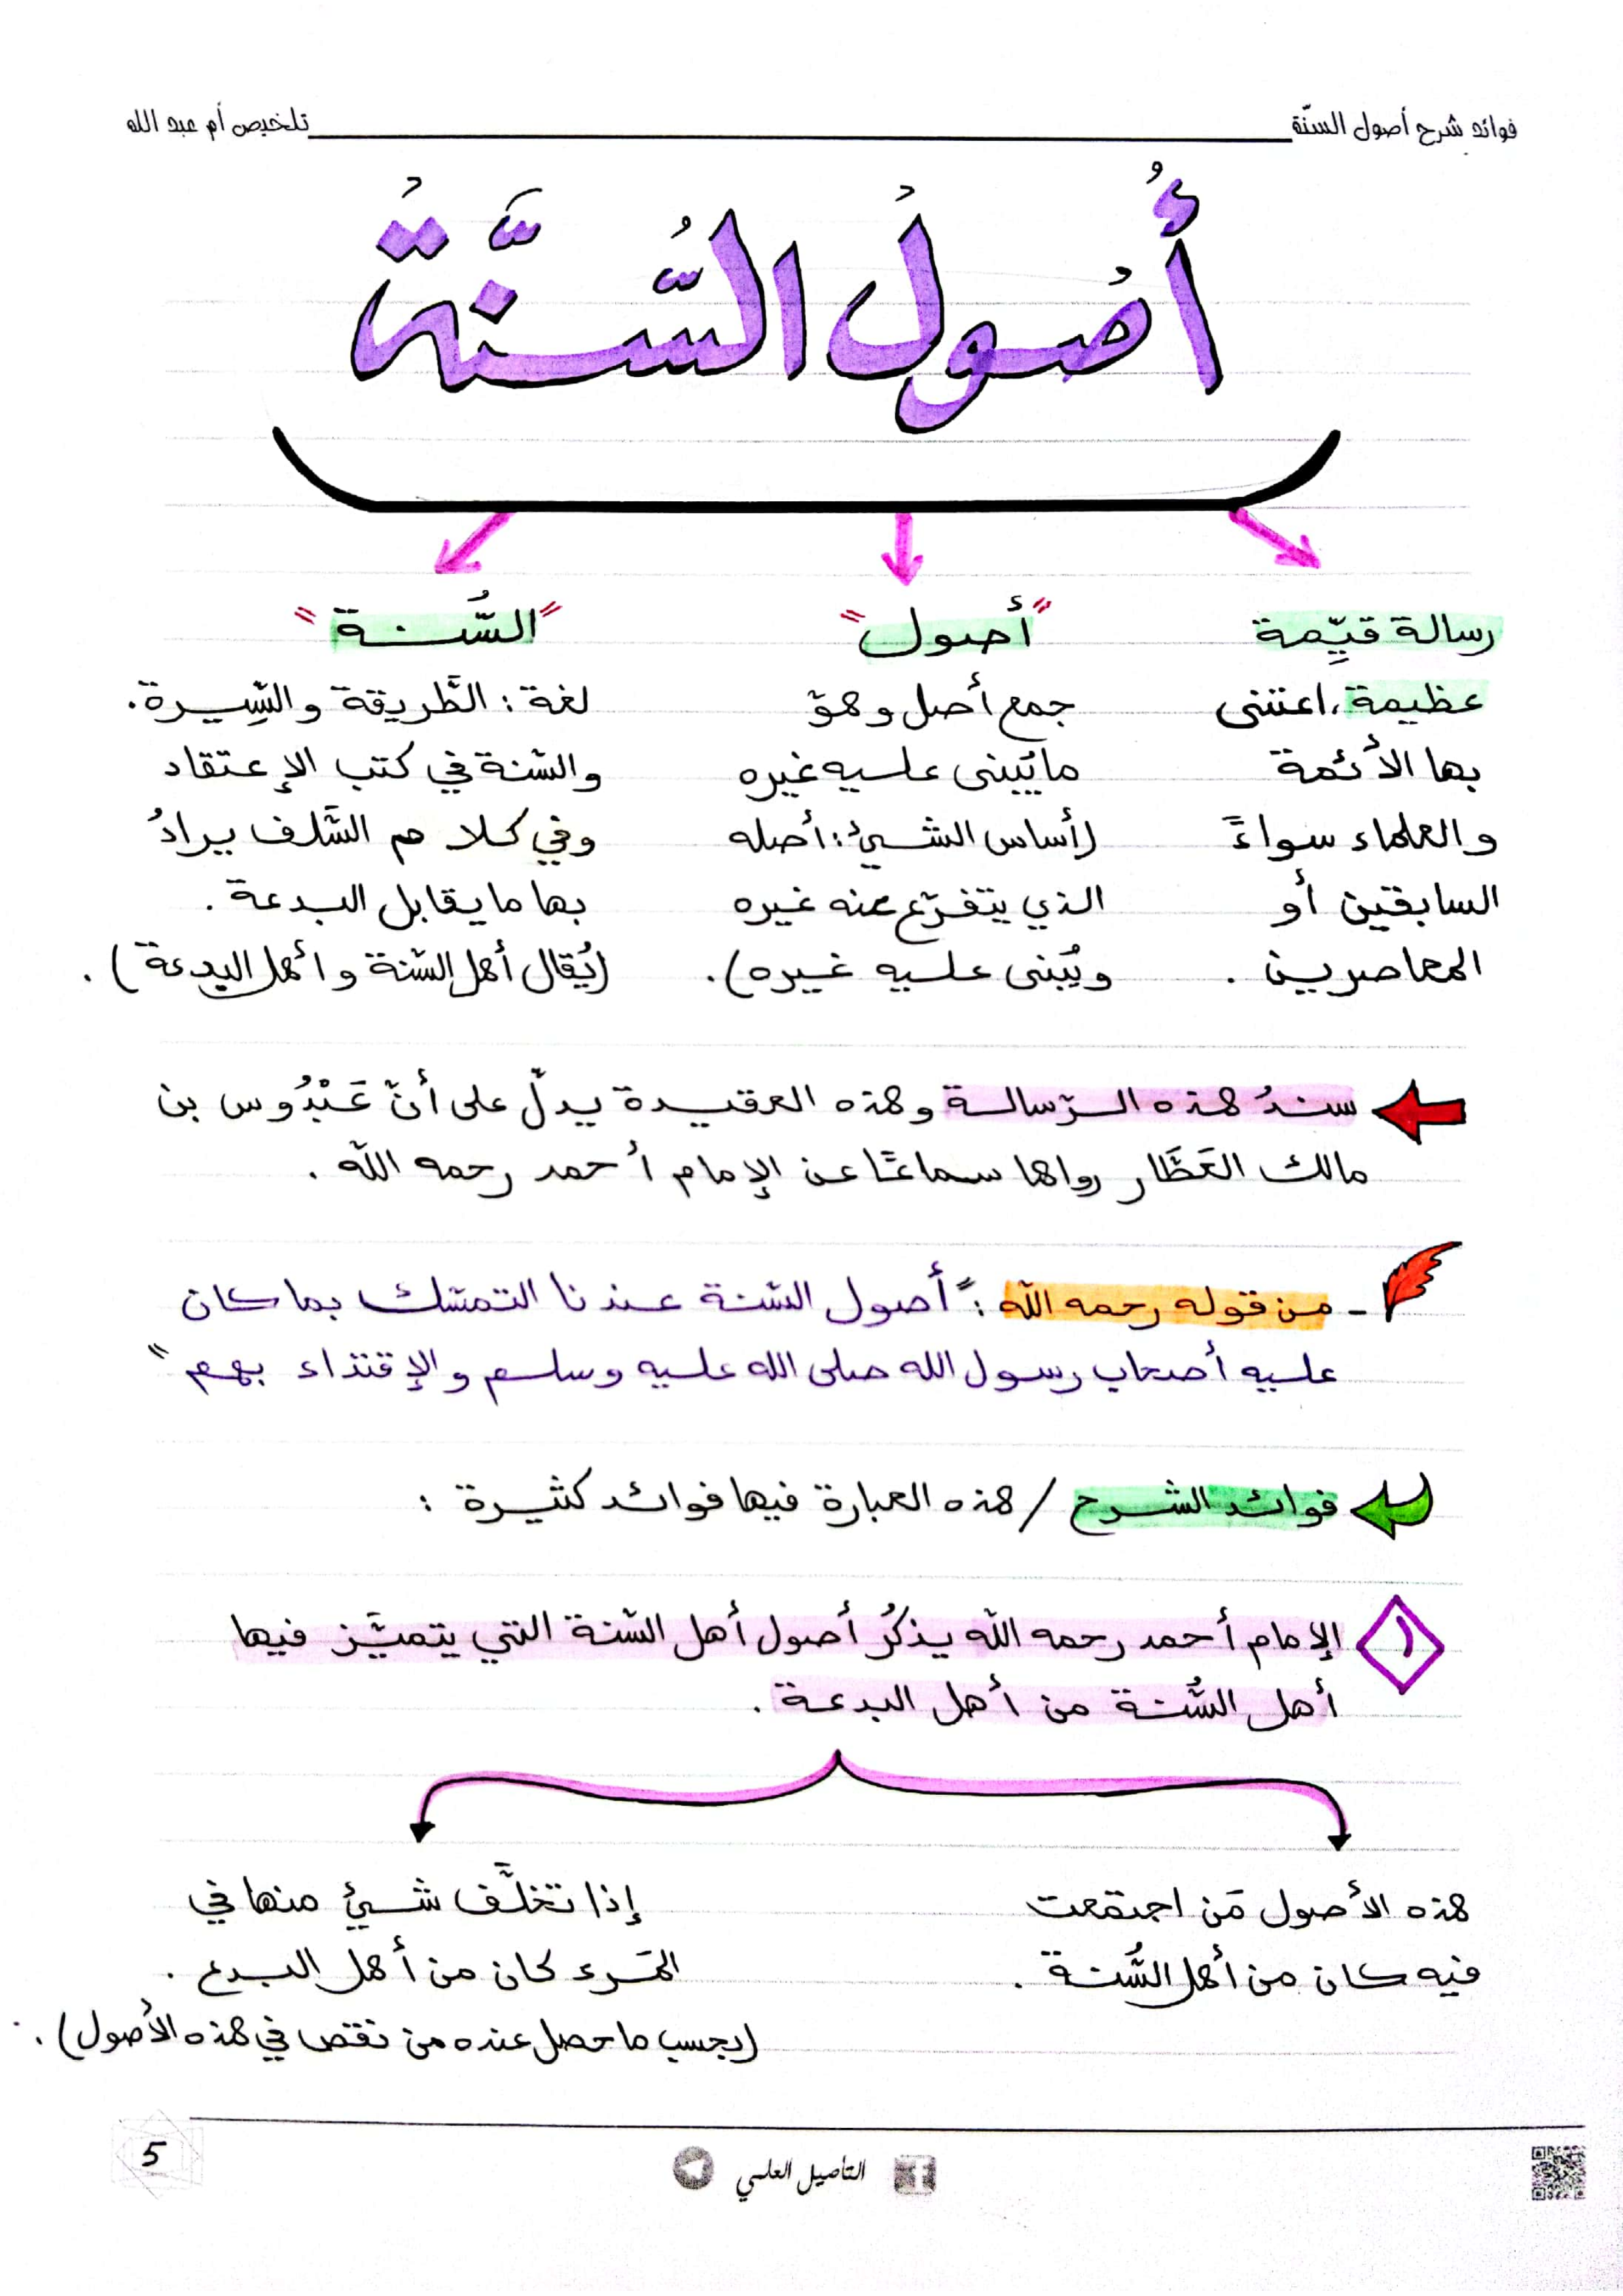 فوائد شرح أصول السنّة
تلخيص أم عبد الله
أُصُولُ السُّنَّةُ
رسالة قيِّمة
عظيمة، اعتنى
بها الأئمة
والعلماء سواءً
السابقين أو
المعاصرين .
"أصول"
جمع أصل وهو
ما يُبنى عليه غيره
(أساس الشيئ: أصله
الذي يتفرّع عنه غيره
ويُبنى عليه غيره).
"السُّنة"
لغة: الطَّريقة والسِّيرة.
والسّنة في كتب الإعتقاد
وفي كلام السَّلف يرادُ
بها ما يقابل البدعة .
(يُقال أهل السّنة وأهل البدعة) .
سندُ هذه الرّسالة وهذه العقيدة يدلّ على أنّ عَبْدُوس بن
مالك العَطَّار رواها سماعًا عن الإمام أحمد رحمه اللّه .
- من قوله رحمه اللّه : "أصول السّنة عندنا التمسّك بما كان
عليه أصحاب رسول الله صلى الله عليه وسلم والإقتداء بهم"
فوائد الشرح / هذه العبارة فيها فوائد كثيرة :
١ الإمام أحمد رحمه اللّه يذكُر أصول أهل السّنة التي يتميَّز فيها
أهل السُّنة من أهل البدعة .
هذه الأصول مَن اجتمعت
فيه كان من أهل السُّنة .
إذا تخلَّف شيئ منها في
المَرء كان من أهل البدع .
(بحسب ما حصل عنده من نقص في هذه الأصول) .
التأصيل العلمي
5